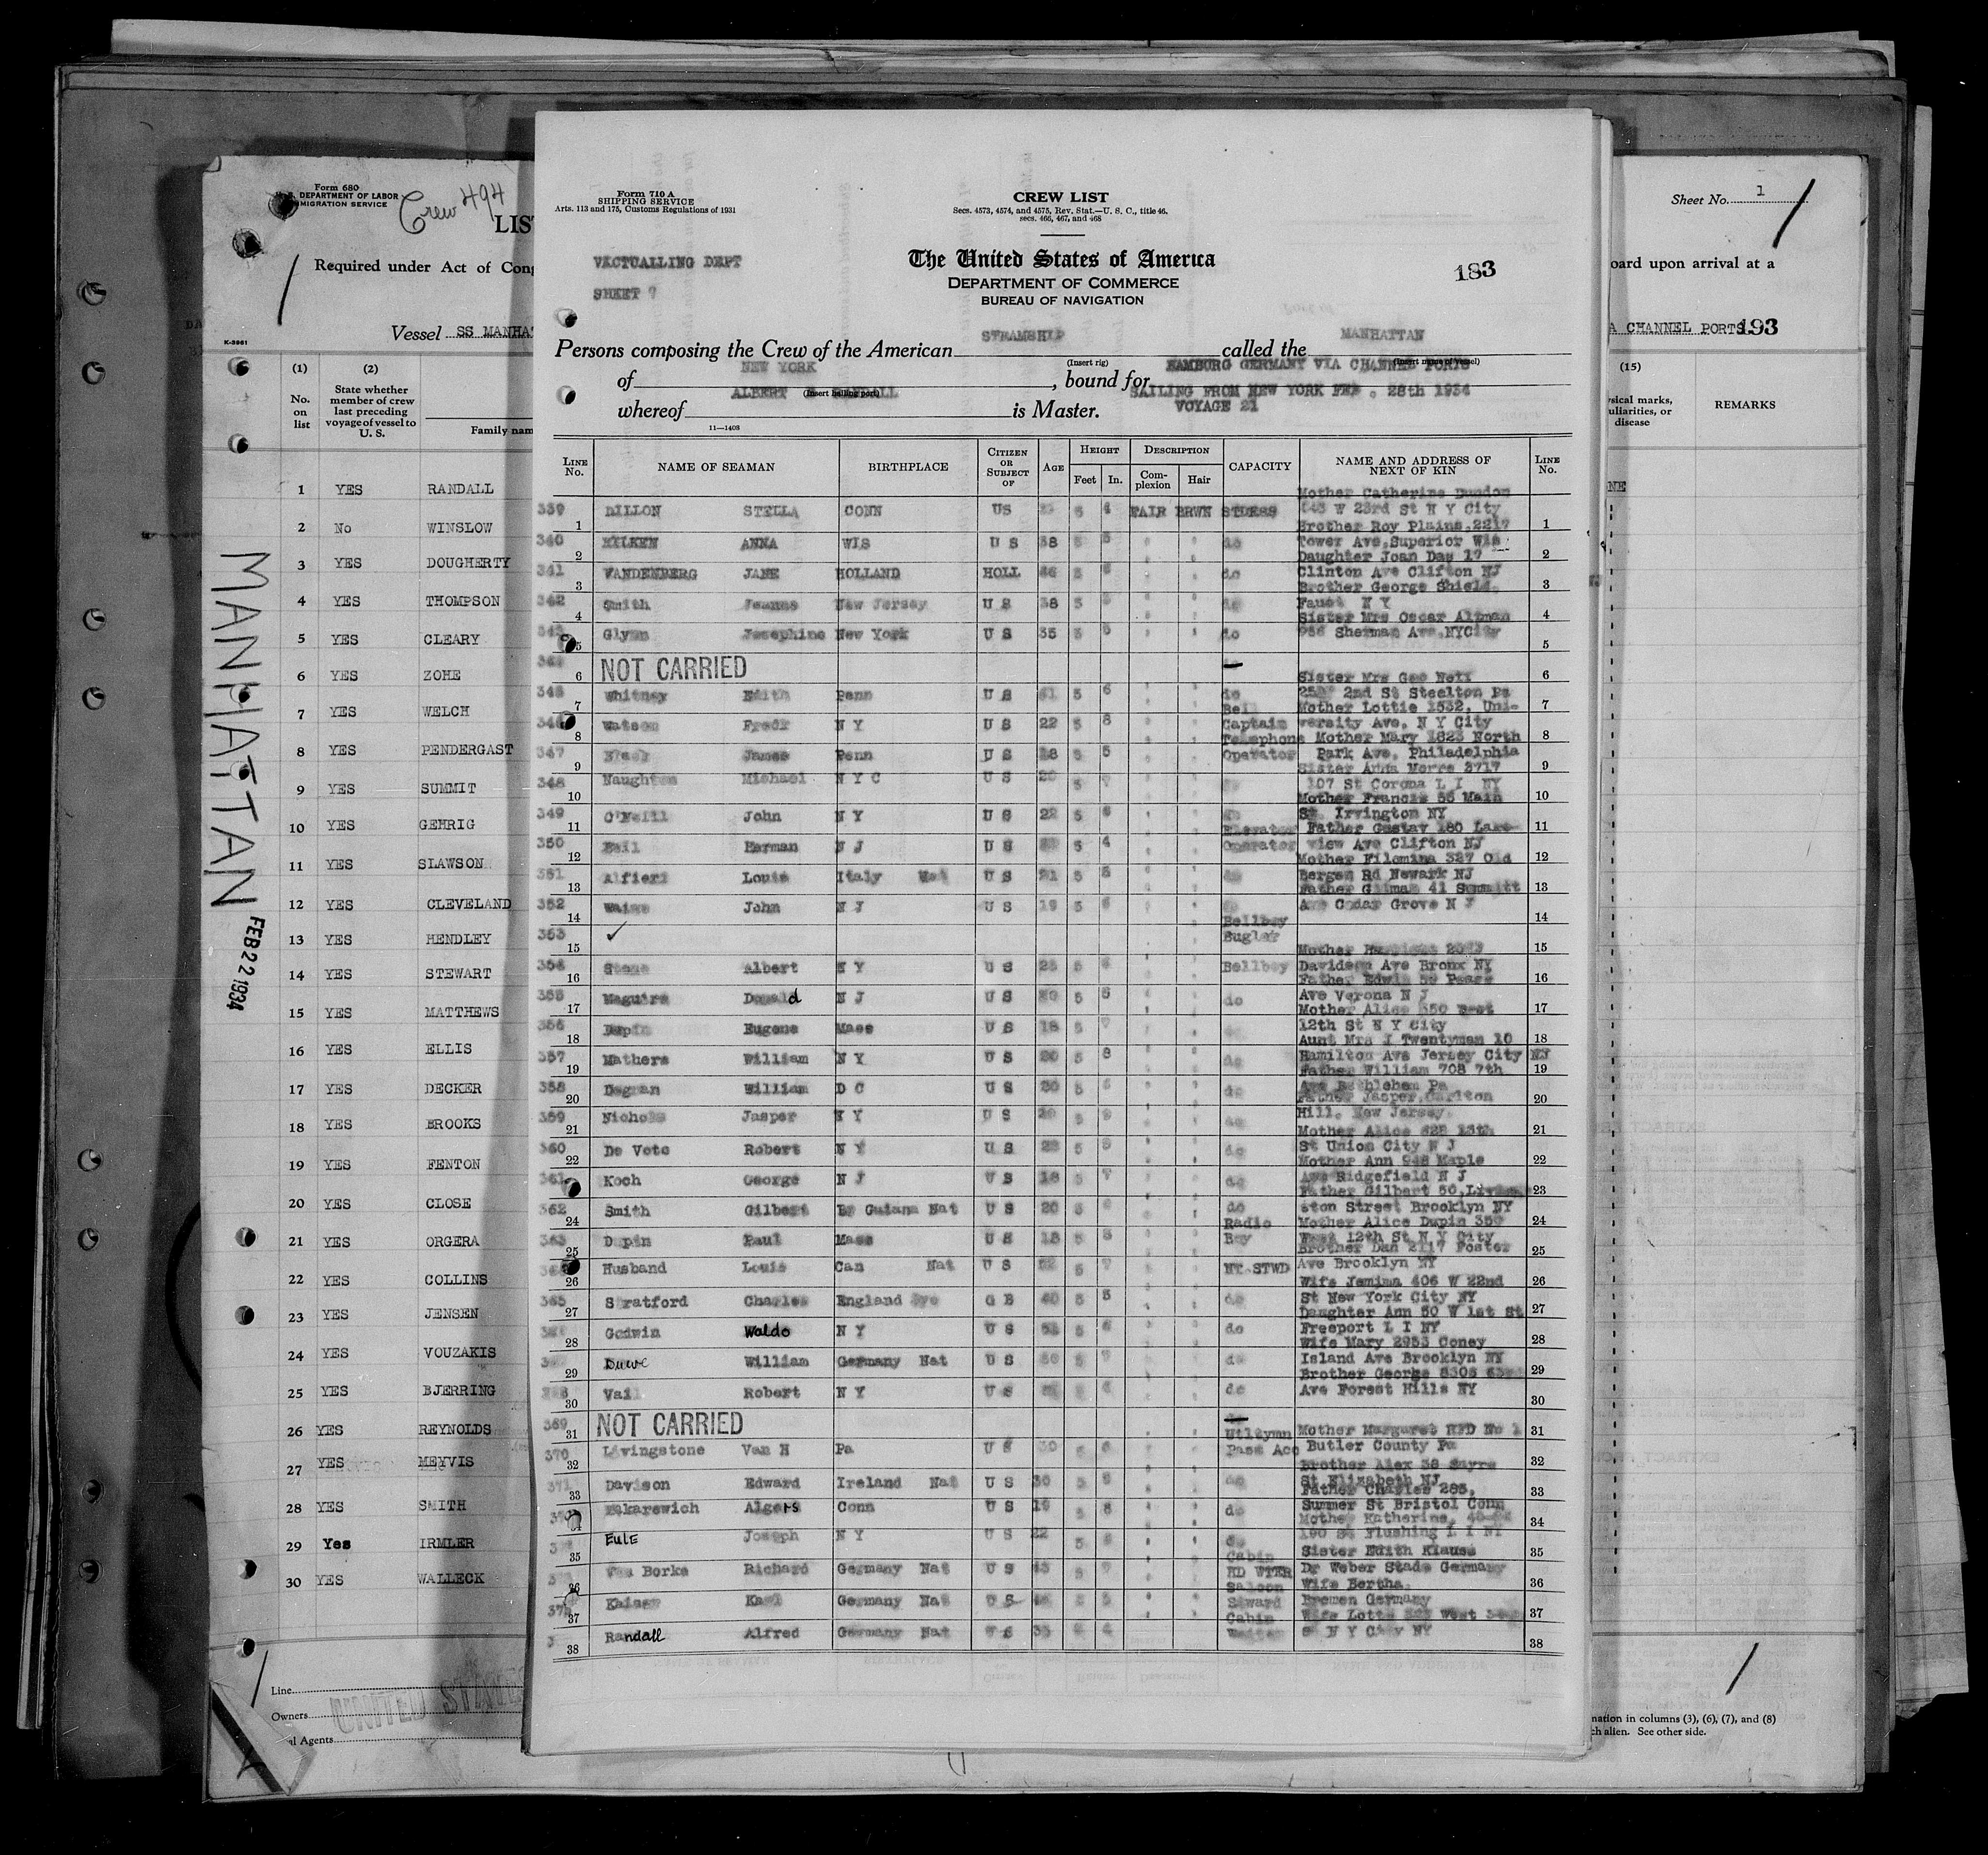 Form 680
DEPARTMENT OF LABOR
MIGRATION SERVICE
Crew 494
LIS
Required under Act of Cong
K-3961
Vessel SS MANHA
(1) (2)
No. on list
State whether member of crew last preceding voyage of vessel to U. S.
Family nam
1 YES RANDALL
2 No WINSLOW
3 YES DOUGHERTY
4 YES THOMPSON
5 YES CLEARY
6 YES ZOHE
7 YES WELCH
8 YES PENDERGAST
9 YES SUMMIT
10 YES GEHRIG
11 YES SLAWSON
12 YES CLEVELAND
13 YES HENDLEY
14 YES STEWART
15 YES MATTHEWS
16 YES ELLIS
17 YES DECKER
18 YES BROOKS
19 YES FENTON
20 YES CLOSE
21 YES ORGERA
22 YES COLLINS
23 YES JENSEN
24 YES VOUZAKIS
25 YES BJERRING
26 YES REYNOLDS
27 YES MEYVIS
28 YES SMITH
29 Yes IRMLER
30 YES WALLECK
Line
Owners
al Agents
UNITED STATES
MANHATTAN
FEB 22 1934
Form 710 A
SHIPPING SERVICE
Arts. 113 and 175, Customs Regulations of 1931
CREW LIST
Secs. 4573, 4574, and 4575, Rev. Stat.—U. S. C., title 46,
secs. 466, 467, and 468
VICTUALLING DEPT
SHEET 7
The United States of America
DEPARTMENT OF COMMERCE
BUREAU OF NAVIGATION
183
Persons composing the Crew of the American STEAMSHIP called the MANHATTAN
(Insert rig) (Insert name of vessel)
of NEW YORK, bound for HAMBURG GERMANY VIA CHANNEL PORTS
(Insert hailing port)
SAILING FROM NEW YORK FEB . 28th 1934
whereof ALBERT RANDALL is Master. VOYAGE 21
11—1408
LINE No. NAME OF SEAMAN BIRTHPLACE CITIZEN OR SUBJECT OF AGE HEIGHT Feet In. DESCRIPTION Complexion Hair CAPACITY NAME AND ADDRESS OF NEXT OF KIN LINE No.
Mother Catherine Dundon
339 1 DILLON STELLA CONN US 5 4 FAIR BRWN STDESS W 23rd St N Y City 1
Brother Roy Plains, 2217
340 2 ANNA WIS U S 38 5 do Tower Ave, Superior Wis 2
Daughter Joan Day 17
341 3 VANDENBERG JANE HOLLAND HOLL 46 5 do Clinton Ave Clifton NJ 3
Brother George Shield
342 4 Smith Jeanne New Jersey U S 38 5 do Faust N Y 4
Sister Mrs Oscar Altman
5 Glynn Josephine New York U S 35 5 do 956 Sherman Ave, NYCity 5
6 NOT CARRIED 6
Sister Mrs Geo Neff
345 7 Whitney Edith Penn U S 41 5 6 do 2nd St Steelton Pa 7
Bell Mother Lottie 1532, Uni-
346 8 Watson Fredk N Y U S 22 5 8 Captain versity Ave, N Y City 8
Telephone Mother Mary 1823 North
347 9 James Penn U S 18 5 5 Operator Park Ave, Philadelphia 9
Sister Anna Morre 3717
348 10 Naughton Michael N Y C U S 20 5 7 107 St Corona L I NY 10
Mother Francis 56 Main
349 11 O'Neill John N Y U S 22 5 6 do St Irvington NY 11
Elevator Father Gustav 180 Lake
350 12 Herman N J U S 5 4 Operator view Ave Clifton NJ 12
Mother Filomina 327 Old
351 13 Alfieri Louis Italy Nat U S 21 5 do Bergen Rd Newark NJ 13
Father Gilman 41 Summitt
352 14 John N J U S 19 5 Ave Cedar Grove N J 14
Bellboy
353 15 ✓ Bugler 15
Mother
16 Albert N Y U S 5 Bellboy Davidson Ave Bronx NY 16
Father Edwin
355 17 Maguire Donald N J U S 5 do Ave Verona N J 17
Mother Alice 350 West
356 18 Dupin Eugene Mass U S 18 5 12th St N Y City 18
Aunt Mrs I Twentyman 10
357 19 Mathers William N Y U S 20 5 8 do Hamilton Ave Jersey City NJ 19
Father William 708 7th
358 20 Degnan William D C U S 20 5 do Ave Bethlehem Pa 20
Father Jasper, Carlton
359 21 Nichols Jasper N Y U S 20 5 do Hill, New Jersey 21
Mother Alice 828 13th
360 22 De Voto Robert N Y U S 5 do St Union City N J 22
Mother Ann 948 Maple
361 23 Koch George N J U S 18 5 7 do Ave Ridgefield N J 23
Father Gilbert 50, Living
362 24 Smith Gilbert Br Guiana Nat U S 20 5 do ston Street Brooklyn NY 24
Radio Mother Alice Dupin 350
363 25 Dupin Paul Mass U S 18 5 Boy West 12th St N Y City 25
Brother Dan 2117 Foster
26 Husband Louis Can Nat U S 5 7 NT STWD Ave Brooklyn NY 26
Wife Jemima 406 W 22nd
365 27 Stratford Charles England G B 40 5 do St New York City NY 27
Daughter Ann 50 W 1st St
28 Godwin Waldo N Y U S 5 do Freeport L I NY 28
Wife Mary 2953 Coney
29 Duwe William Germany Nat U S 5 do Island Ave Brooklyn NY 29
Brother George
30 Vail Robert N Y U S do Ave Forest Hills NY 30
369 31 NOT CARRIED 31
Utilymn Mother Margaret RFD No 1
370 32 Livingstone Van H Pa U S 30 Pass Acc Butler County Pa 32
Brother Alex 38 Sayre
371 33 Davison Edward Ireland Nat U S 30 5 do St Elizabeth NJ 33
Father Charles 285,
34 Makarewich Algers Conn U S 19 5 8 do Summer St Bristol Conn 34
Mother Katherine,
35 EULE Joseph N Y U S 22 5 do 190 St Flushing L I NY 35
Cabin Sister Edith Klauss
36 Von Borke Richard Germany Nat U S 5 HD WTER Dr Weber Stade Germany 36
Saloon Wife Bertha,
37 Karl Germany Nat U S 5 Steward Bremen Germany 37
Cabin Wife Lotte West
38 Randall Alfred Germany Nat U S 35 Waiter N Y City NY 38
Sheet No. 1
oard upon arrival at a
A CHANNEL PORTS 193
(15)
sical marks, uliarities, or disease
REMARKS
NE
mation in columns (3), (6), (7), and (8)
ch alien. See other side.